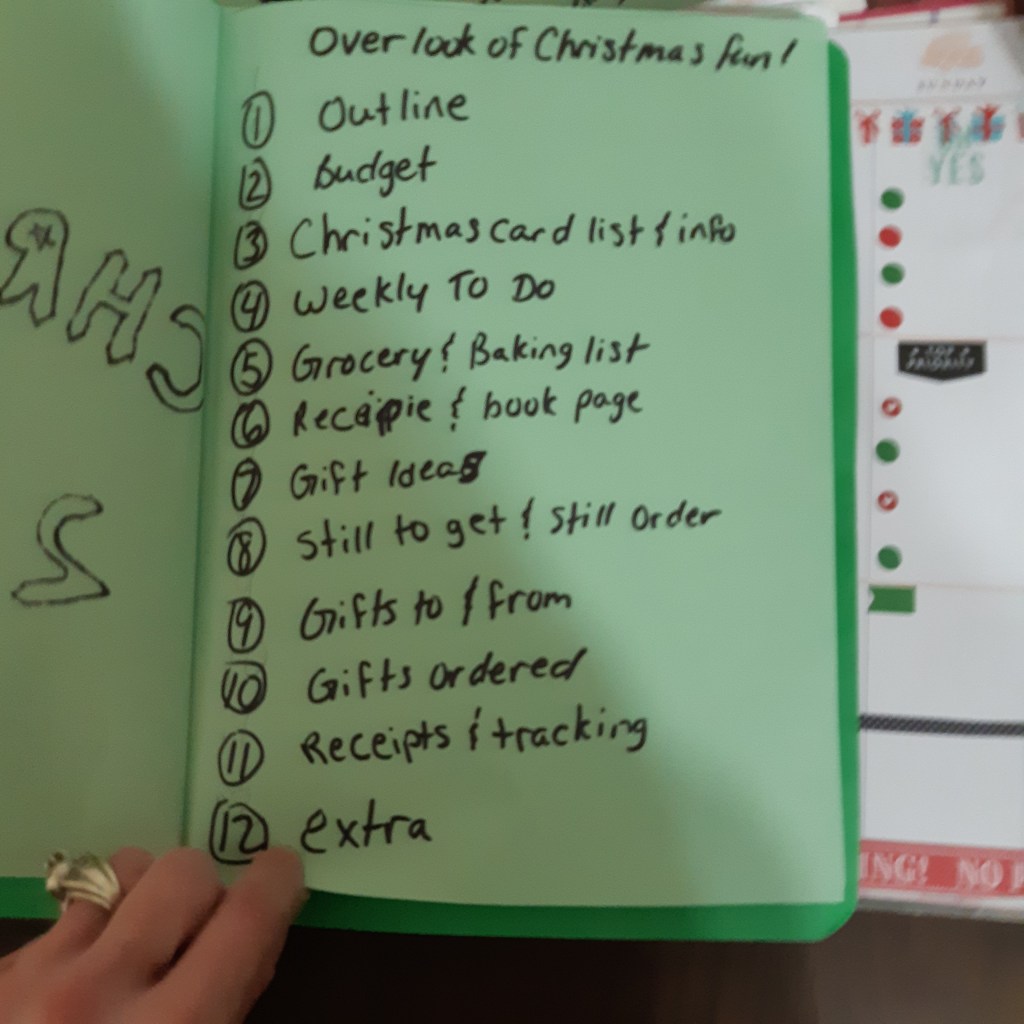 Over look of Christmas fun!
1 Outline
2 Budget
3 Christmas card list & info
4 Weekly To Do
5 Grocery & Baking list
6 Recipie & book page
7 Gift Ideas
8 Still to get & Still order
9 Gifts to & from
10 Gifts ordered
11 Receipts & tracking
12 extra
YES
TOP
PRIORITY
ING! NO